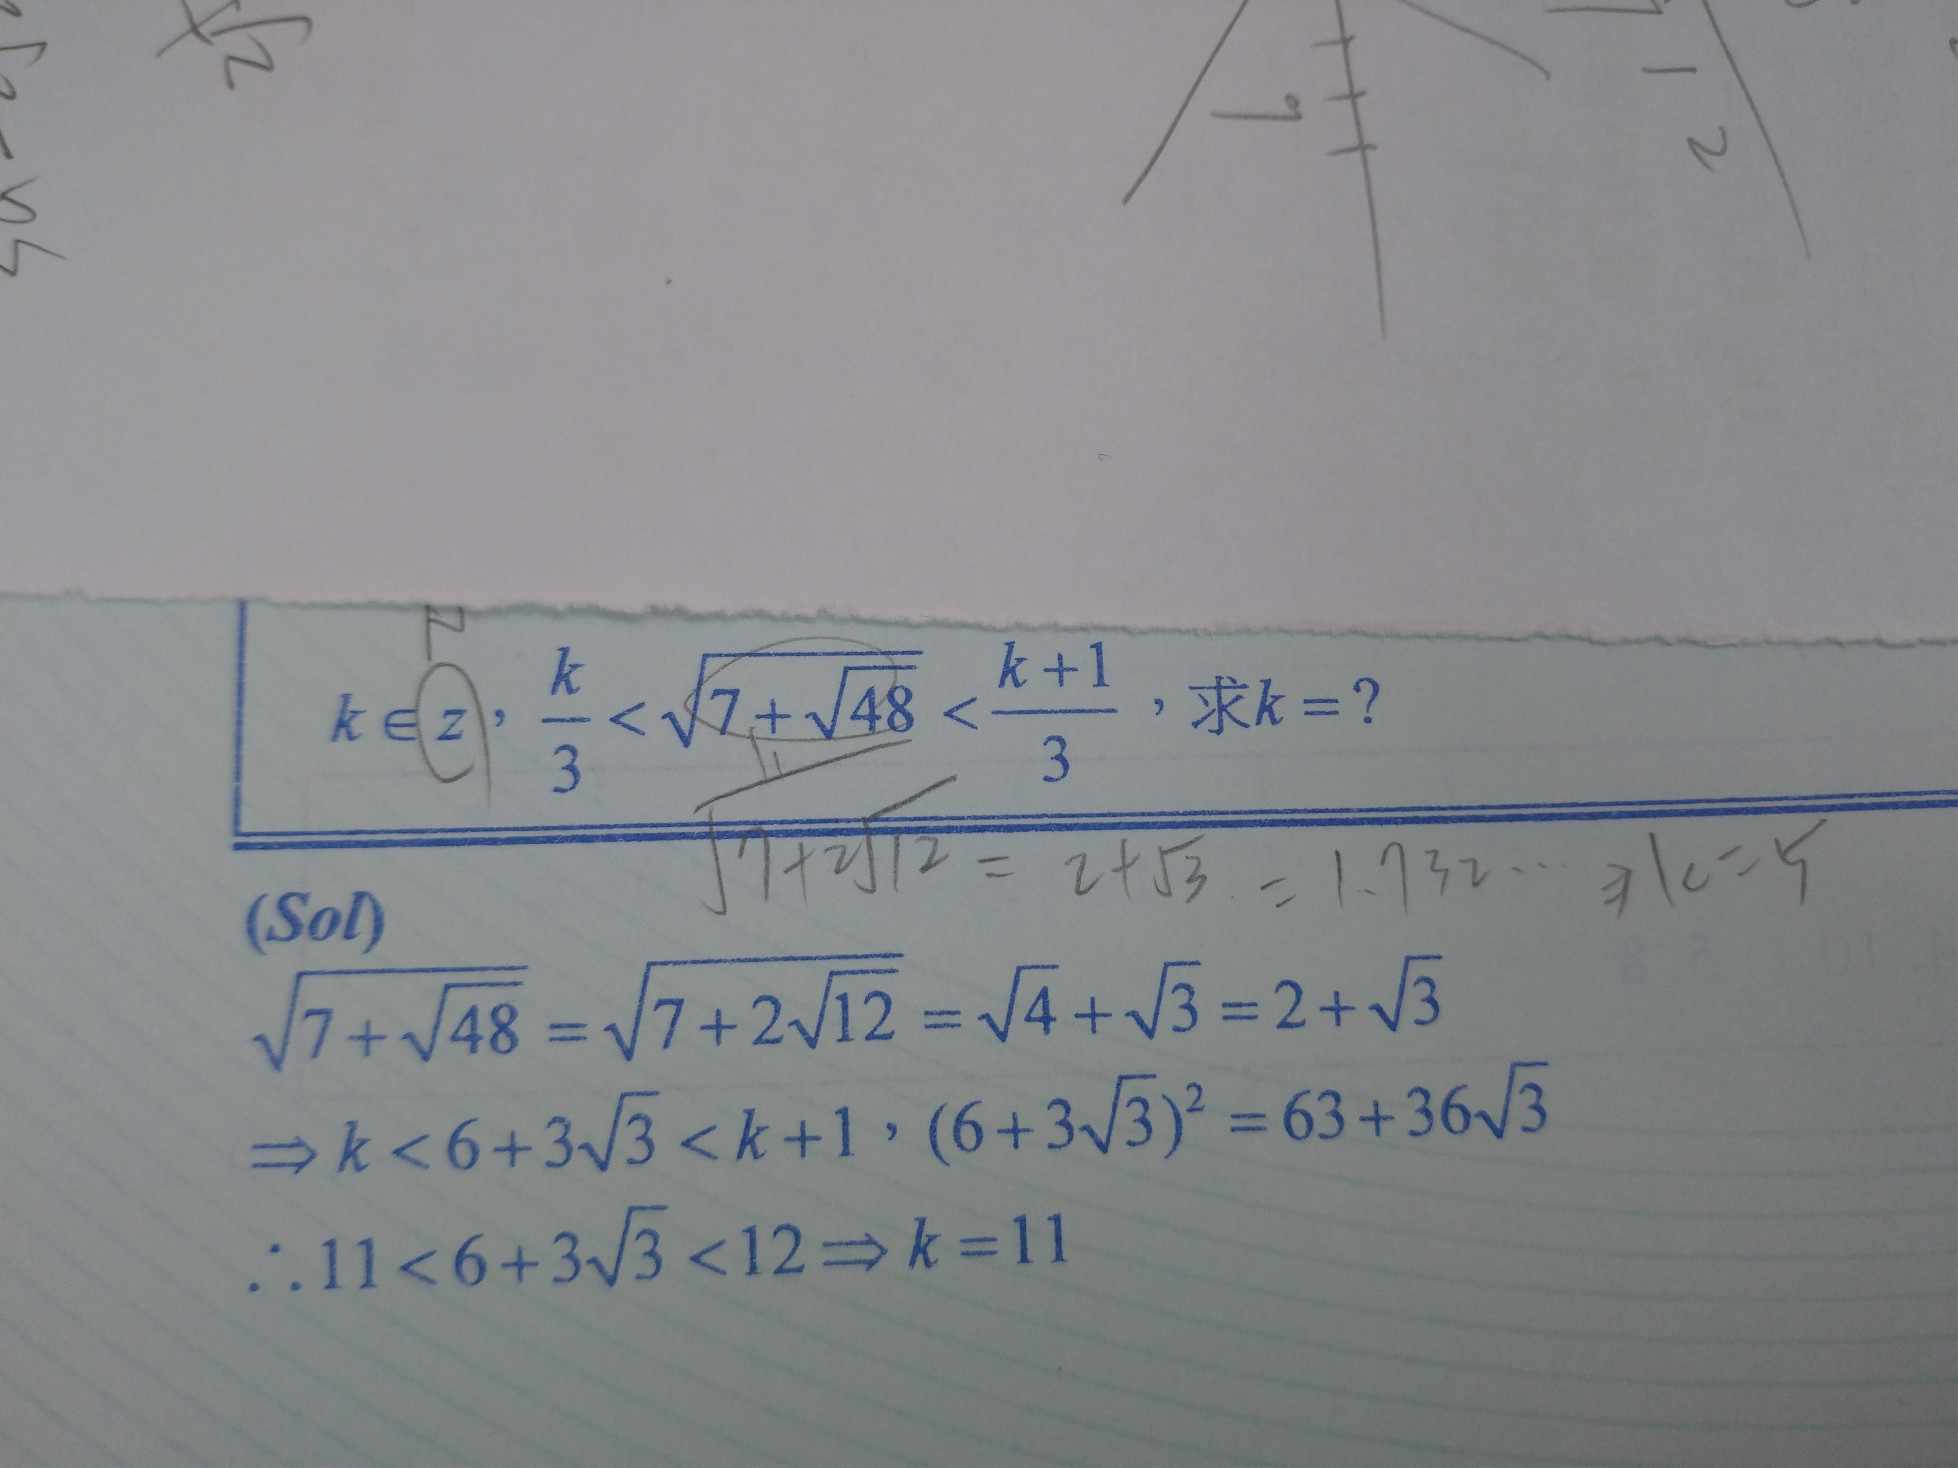 √2
1
1 2
k ∈ z，k/3 < √(7+√48) < (k+1)/3，求k=？
√(7+2√12) = 2+√3 = 1.732… ⇒ k=5
(Sol)
√(7+√48) = √(7+2√12) = √4+√3 = 2+√3
⇒ k < 6+3√3 < k+1，(6+3√3)² = 63+36√3
∴11 < 6+3√3 < 12 ⇒ k = 11